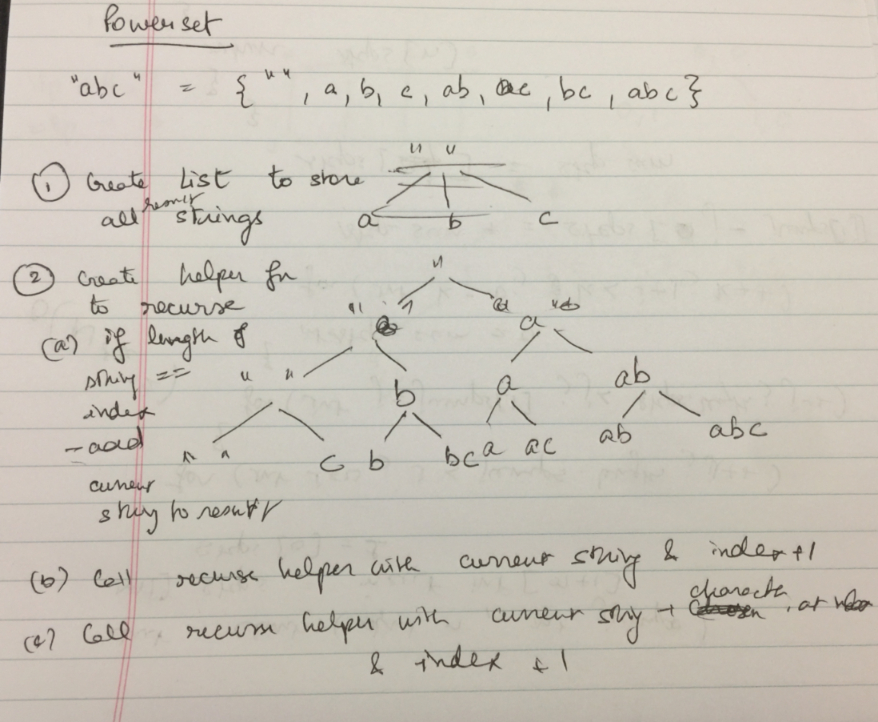 Powerset
"abc" = { "" , a, b, c, ab, ac, bc, abc }
① Create List to store
all result strings
" "
a b c
② Create helper fn
to recurse
(a) if length of
string ==
index
- add
current
string to result
"
" " a
" " b a ab
" " c b bc a ac ab abc
(b) Call recurse helper with current string & index +1
(c) Call recurse helper with current string + character at
& index +1